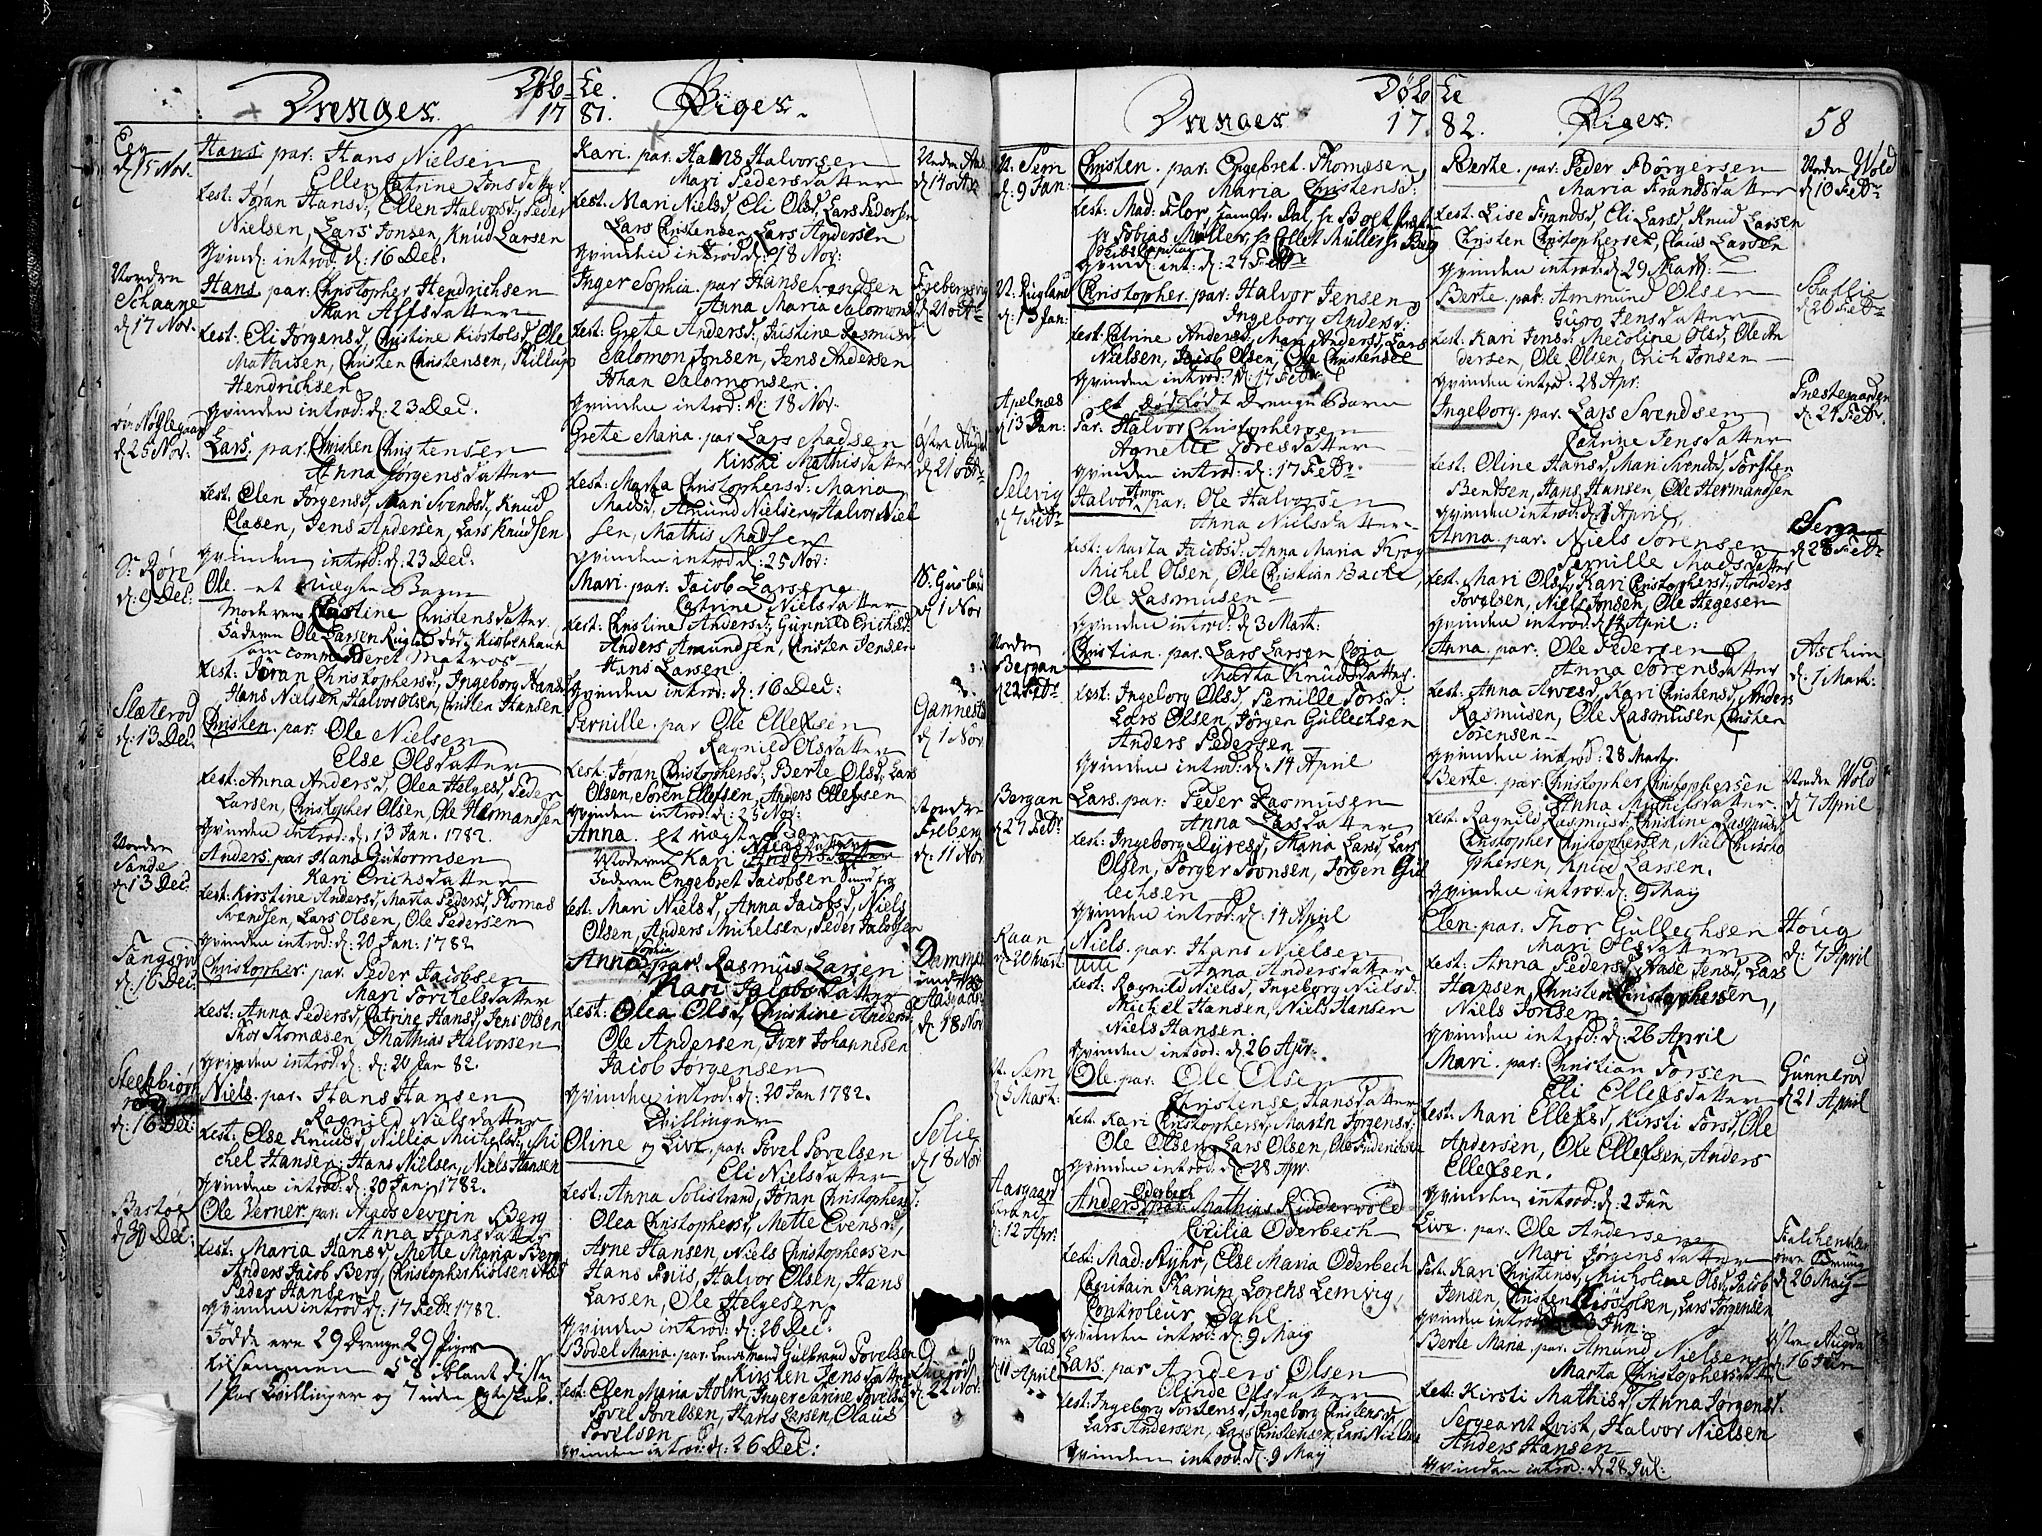 Drenger. Døb=
17
Eeg
d. 15 Nov.
Hans par: Hans Nielsen
Ellen Catrine Jensdatter
test: Jøran Hansd, Ellen Halvorsd, Peder
Nielsen, Lars Jonsen, Knud Larsen
Qvind: introd. d: 16 Dec.
Nordre
Schaane
d. 17 Nov.
Hans par: Christopher Hendrichsen
Mari Alfsdatter
test: Eli Jørgensd, Christine Kiøstolsd, Ole
Mathisen, Christen Christensen, Phillip
Hendrichsen
Qvinden introd: d: 23 Dec.
d. 25 Nov.
Lars. par. Christen Christensen
Anna Jørgensdatter
test: Elen Jørgensd, Mari Svendsd, Knud
Clasen, Jens Andersen, Lars Knudsen
qvinden introd: d: 23 Dec:
S. Røre
d. 9 Dec:
Ole et uægte Barn
Moderen Christine Christensdatter
Faderen Ole Larsen
som commanderet Matros
test: Jøran Christophersd, Ingeborg Hansd
Hans Nielsen, Halvor Olsen, Christen Hansen
Slæterod
d: 13 Dec.
Christen. par: Ole Nielsen
Else Olsdatter
test: Anna Andersd, Olea Helgesd, Peder
Larsen, Christopher Olsen, Ole Hermandsen
Qvinden introd: d: 13 Jan. 1782.
Norden
Sande
d: 13 Dec.
Anders. par Hans Guttormsen
Kari Erichsdatter
test: Kirstine Andersd, Marta Pedersd, Thomas
Svendsen, Lars Olsen, Ole Pedersen
qvinden introd: d: 20 Jan: 1782.
d: 16 Dec.
Christopher. par. Peder Jacobsen
Mari Torkelsdatter
test: Anna Pedersd, Catrine Hansd, Jens Olsen
Thor Thomæsen, Mathias Halvorsen
qvinden introd: d: 20 Jan 82.
d: 16 Dec:
Niels. par. Hans Hansen
Ragnild Nielsdatter
test: Else Knudsd, Nillia Michelsd, Mi
chel Hansen, Hans Nielsen, Niels Hansen
qvinden introd: d: 20 Jan: 1782.
Bastøe
d. 30 Dec:
Ole Verner par. Mads Severin Berg
Anna Hansdatter
test: Maria Hansd, Mette Maria Berg
Anders Jacob Berg, Christopher
Peder Hansen
qvinden introd: d: 17 Febr 1782.
Fødde ere 29 Drenge 29 Piger
tilsammen 58 iblant disse
1 par Tvillinger og 7 uden Egteskab.
te.
81. Piger.
Kari. par: Hans Halvorsen
Mari Pedersdatter
test: Mari Nielsd, Eli Olsd, Lars Pedersen
Lars Christensen, Lars Andersen
qvinden introd: d: 18 Nov:
Inger Sophia. par Hans Knudsen
Anna Maria Salomonsd
test: Grete Andersd, Justine Rasmusd
Salomon Jonsen, Jens Andersen
Johan Salomonsen.
qvinden introd: d: 18 Nov.
Grete Maria. par Lars Madsen
Kirsti Mathisdatter
test: Marta Christophersd: Maria
Madsd, Amund Nielsen, Halvor Niel
sen, Mathis Madsen
qvinden introd d: 25 Nov:
Mari. par: Jacob Larsen
Catrine Nielsdatter
test: Christine Andersd, Gunnild Erichsd
Anders Amundsen, Christen Jensen
Hans Larsen
qvinden introd: d: 16 Dec:
Pernille. par Ole Ellefsen
Ragnild Olsdatter
test: Jøran Christophersd, Berte Olsd, Lars
Olsen, Søren Ellefsen, Anders Ellefsen
qvinden introd: d: 25 Nov:
Anna. et uægte Barn
Moderen Kari Nielsdatter
Faderen Engebret Jacobsen
test: Mari Nielsd, Anna Jacobsd, Niels
Olsen, Anders Michelsen, Peder Jacobsen
Anna Sophia par. Rasmus Larsen
Mari Jacobsdatter
test: Olea Olsd, Christine Andersd
Ole Andersen, Iver Johannesen
Jacob Jørgensen
qvinden introd: d: 20 Jan 1782.
Tvillinger
Oline og Live. par. Povel Povelsen
Eli Nielsdatter
test: Anna Solistrand, Jøran Christophersd
Olea Christophersd, Mette Evensd,
Arne Hansen, Niels Christophersen
Hans Friis, Halvor Olsen, Hans
Larsen, Ole Helgesen
qvinden introd: d: 26 Dec:
Bodel Maria. par. Gulbrand Povelsen
Kirsten Jensdatter
test: Elen Maria Holm, Inger Sørine Povelsd
Povel Povelsen, Hans Larsen, Claus
Povelsen
qvinden introd: d: 26 Dec:
d. 14 Oct
d. 21 Oct
d. 21 Oct
d. 1 Nov
Gannestad
d. 1 Nov.
Nordre
Freberg
d. 11 Nov
d. 18 Nov
Solie
d. 18 Nov
d. 22 Nov.
Drenger Døb
17
V. Sem
d. 9 Jan:
Christen. par. Engebret Thomæsen
Maria Christensd:
test: Mad: Flor, Jomfr. Dal, hr Boet
hr Tobias Møller, hr Collet Müller, hr Berg
qvind: int: d: 27 Febr
d. 13 Jan:
Christopher. par: Halvor Jensen
Ingeborg Andersd:
test: Catrine Andersd, Mari Andersd, Lars
Nielsen, Jacob Olsen, Ole Christensen
qvinden introd: d: 17 Febr.
Apelnæs
d. 13 Jan:
et dødfødt Drenge Barn
Par. Halvor Christophersen
Agnette Toresdatter
qvinden introd: d: 17 Febr.
Selevig
d. 7 Febr
Halvor Amon par: Ole Halvorsen
Anna Nielsdatter
test: Marta Jacobsd: Anna Maria Krog
Michel Olsen, Ole Christian Backe,
Ole Rasmusen
qvinden introd: d 3 Mart:
Norden
Bergan
d. 22 Febr
Christian. par. Lars Larsen Coja
Marta Knudsdatter.
test: Ingeborg Olsd, Pernille Torsd:
Lars Olsen, Jørgen Gullechsen
Anders Pedersen
qvinden introd: d: 14 April
Bergan
d. 27 Febr.
Lars. par: Peder Rasmusen
Anna Larsdatter
test: Ingeborg Dyresd, Maria Larsd, Lars
Olsen, Torger Svensen, Jørgen Gul
lechsen
qvinden introd: d: 14 April
Raan
d. 20 Mart
Niels. par: Hans Nielsen
Anna Andersdatter
test: Ragnild Nielsd, Ingeborg Nielsd.
Michel Hansen, Niels Hansen
Niels Hansen.
qvinden introd: d: 26 Apr:
V. Sem
d. 5 Mart:
Ole. par: Ole Olsen
Christense Hansdatter
test: Kari Christophersd, Martn Jørgensd:
Ole Olsen, Lars Olsen, Ole Friderichsen
qvinden introd: d: 28 Apr.
Aasgaard
strand
d: 12 Apr:
Anders Oderbech par: Mathias Riddervold
Cicilia Oderbech
test: Mad: Kyhr, Else Maria Oderbech
Capitain Tharum, Lorens Lemvig,
Controleur Dahl
qvinden introd: d: 9 Maij
Aas
d. 11 April
Lars. par Anders Olsen
Olinde Olsdatter
test: Ingeborg Torstensd, Ingeborg Christensd,
Lars Andersen, Lars Christensen, Lars Nielsen
qvinden introd: d: 9 Maij
te
82. Piger. 58
Berte. par: Peder Børgersen
Maria Frandsdatter
test. Lise Frandsd, Eli Larsd, Knud Larsen
Christen Christophersen, Claus Larsen
qvinden introd: d 29 Mart:
Berte. par: Ammund Olsen
Guro Jensdatter
test: Kari Jensd: Nicoline Olsd, Ole An
dersen, Ole Olsen, Erich Jonsen
qvinden introd: 28 Apr:
Ingeborg. par. Lars Svendsen
Catrine Jensdatter
test: Oline Hansd, Mari Svendsd, Torsten
Bentsen, Hans Hansen, Ole Hermandsen
qvinden introd: d 1 April
Anna. par. Niels Sørensen
Pernille Madsdatter
test: Mari Olsd, Kari Christophersd, Anders
Povelsen, Niels Jonsen, Ole Hegesen
qvinden introd: d 14 April:
Anna. par: Ole Pedersen
Anna Sørensdatter
test: Anna Arvesd, Kari Christensd, Anders
Rasmusen, Ole Rasmusen, Christen
Sørensen
qvinden introd: 28 Mart.
Berte. par Christopher Christophersen
Anna Michelsdatter.
test: Ragnild Rasmusd, Christine Rasmusd
Christopher Christophersen, Niels Christo
phersen, Knud Larsen.
qvinden introd: d: 9 Maij
Elen. par. Thor Gullechsen
Mari Olsdatter
test: Anna Pedersd, Aase Jensd, Lars
Hansen, Christen Christophersen,
Niels Jonsen
qvinden introd: d: 26 April
Mari. par: Christian Torsen
Eli Ellefsdatter
test: Mari Ellefsd, Kirsti Torsd, Ole
Andersen, Ole Ellefsen, Anders
Ellefsen.
qvinden introd: d: 2 Jun
Live. par: Ole Andersen
Mari Jørgensdatter
test: Kari Christensd, Nicholine Olsd, Jacob
Jensen, Christen Kiøstolsen, Lars Jørgensen
qvinden introd: Jun:
Berte Maria. par: Amund Nielsen
Marta Christophersdatter
test: Kirsti Mathisd, Anna Jørgensd.
Sergeant Qvist, Halvor Nielsen
Anders Hansen
qvinden introd: d 28 Jul:
Norden Wold
d. 10 Febr
d. 20 Febr
Prestegaarden
d. 27 Febr.
d. 28 Febr
Aschim
d: 1 Mart:
Norden Wold
d. 7 April
Houg
d: 7 April
Gunnerød
d. 21 April
d. 26 Maij